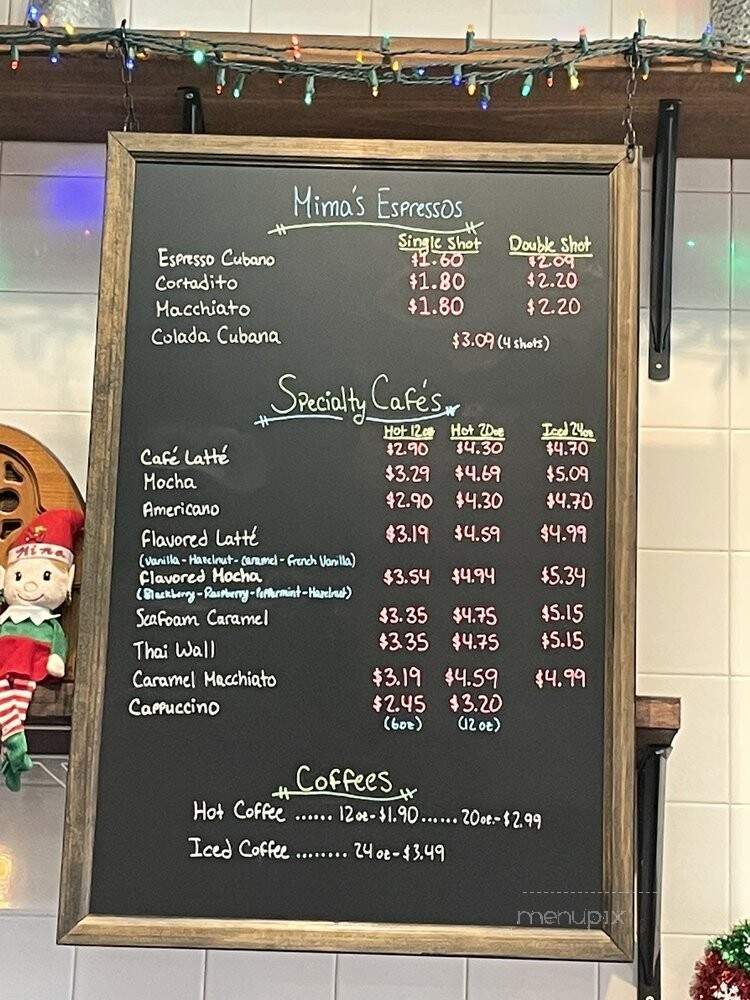 Mima's Espressos
Single Shot Double Shot
Espresso Cubano $1.60 $2.09
Cortadito $1.80 $2.20
Macchiato $1.80 $2.20
Colada Cubana $3.09 (4 shots)
Specialty Café's
Hot 12oz Hot 20oz Iced 24oz
Café Latté $2.90 $4.30 $4.70
Mocha $3.29 $4.69 $5.09
Americano $2.90 $4.30 $4.70
Flavored Latté $3.19 $4.59 $4.99
(Vanilla - Hazelnut - Caramel - French Vanilla)
Flavored Mocha $3.54 $4.94 $5.34
(Blackberry - Raspberry - Peppermint - Hazelnut)
Seafoam Caramel $3.35 $4.75 $5.15
Thai Wall $3.35 $4.75 $5.15
Caramel Macchiato $3.19 $4.59 $4.99
Cappuccino $2.45 $3.20
(6oz) (12oz)
Coffees
Hot Coffee ...... 12oz - $1.90 ...... 20oz. - $2.99
Iced Coffee ........ 24oz - $3.49
menupix